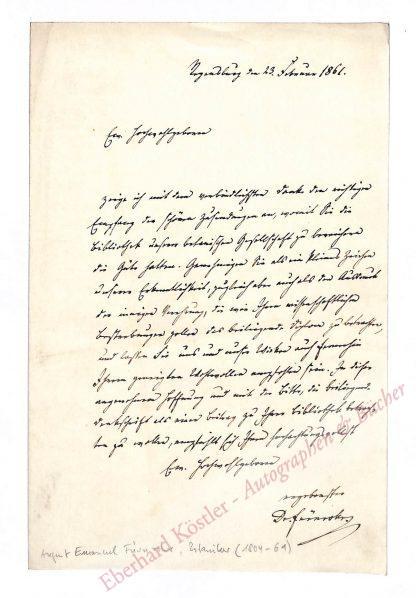 Regensburg den 23. Februar 1861.
Ew. Hochwohlgeboren
zeige ich mit dem verbindlichsten Danke den richtigen
Empfang der schönen Zusendungen an, womit Sie die
Bibliothek unserer botanischen Gesellschaft zu bereichern
die Güte hatten. Genehmigen Sie als ein kleines Zeichen
unserer Erkenntlichkeit, zugleich aber auch als den Ausdruck
der innigen Verehrung, die wir Ihren wissenschaftlichen
Bestrebungen zollen das beiliegende zu betrachten,
und lassen Sie uns und unser Wirken auch fernerhin
Ihrem geneigten Wohlwollen empfohlen sein. In dieser
angenehmen Hoffnung und mit der Bitte, die beiliegende
Denkschrift als einen Beitrag zu Ihrer Bibliothek
zu wollen, empfiehlt sich Ihnen hochachtungsvollst
Ew. Hochwohlgeboren
ergebenster
Dr. Fürnrohr
August Emanuel Fürnrohr, Botaniker (1804-61)
Eberhard Köstler - Autographen & Bücher